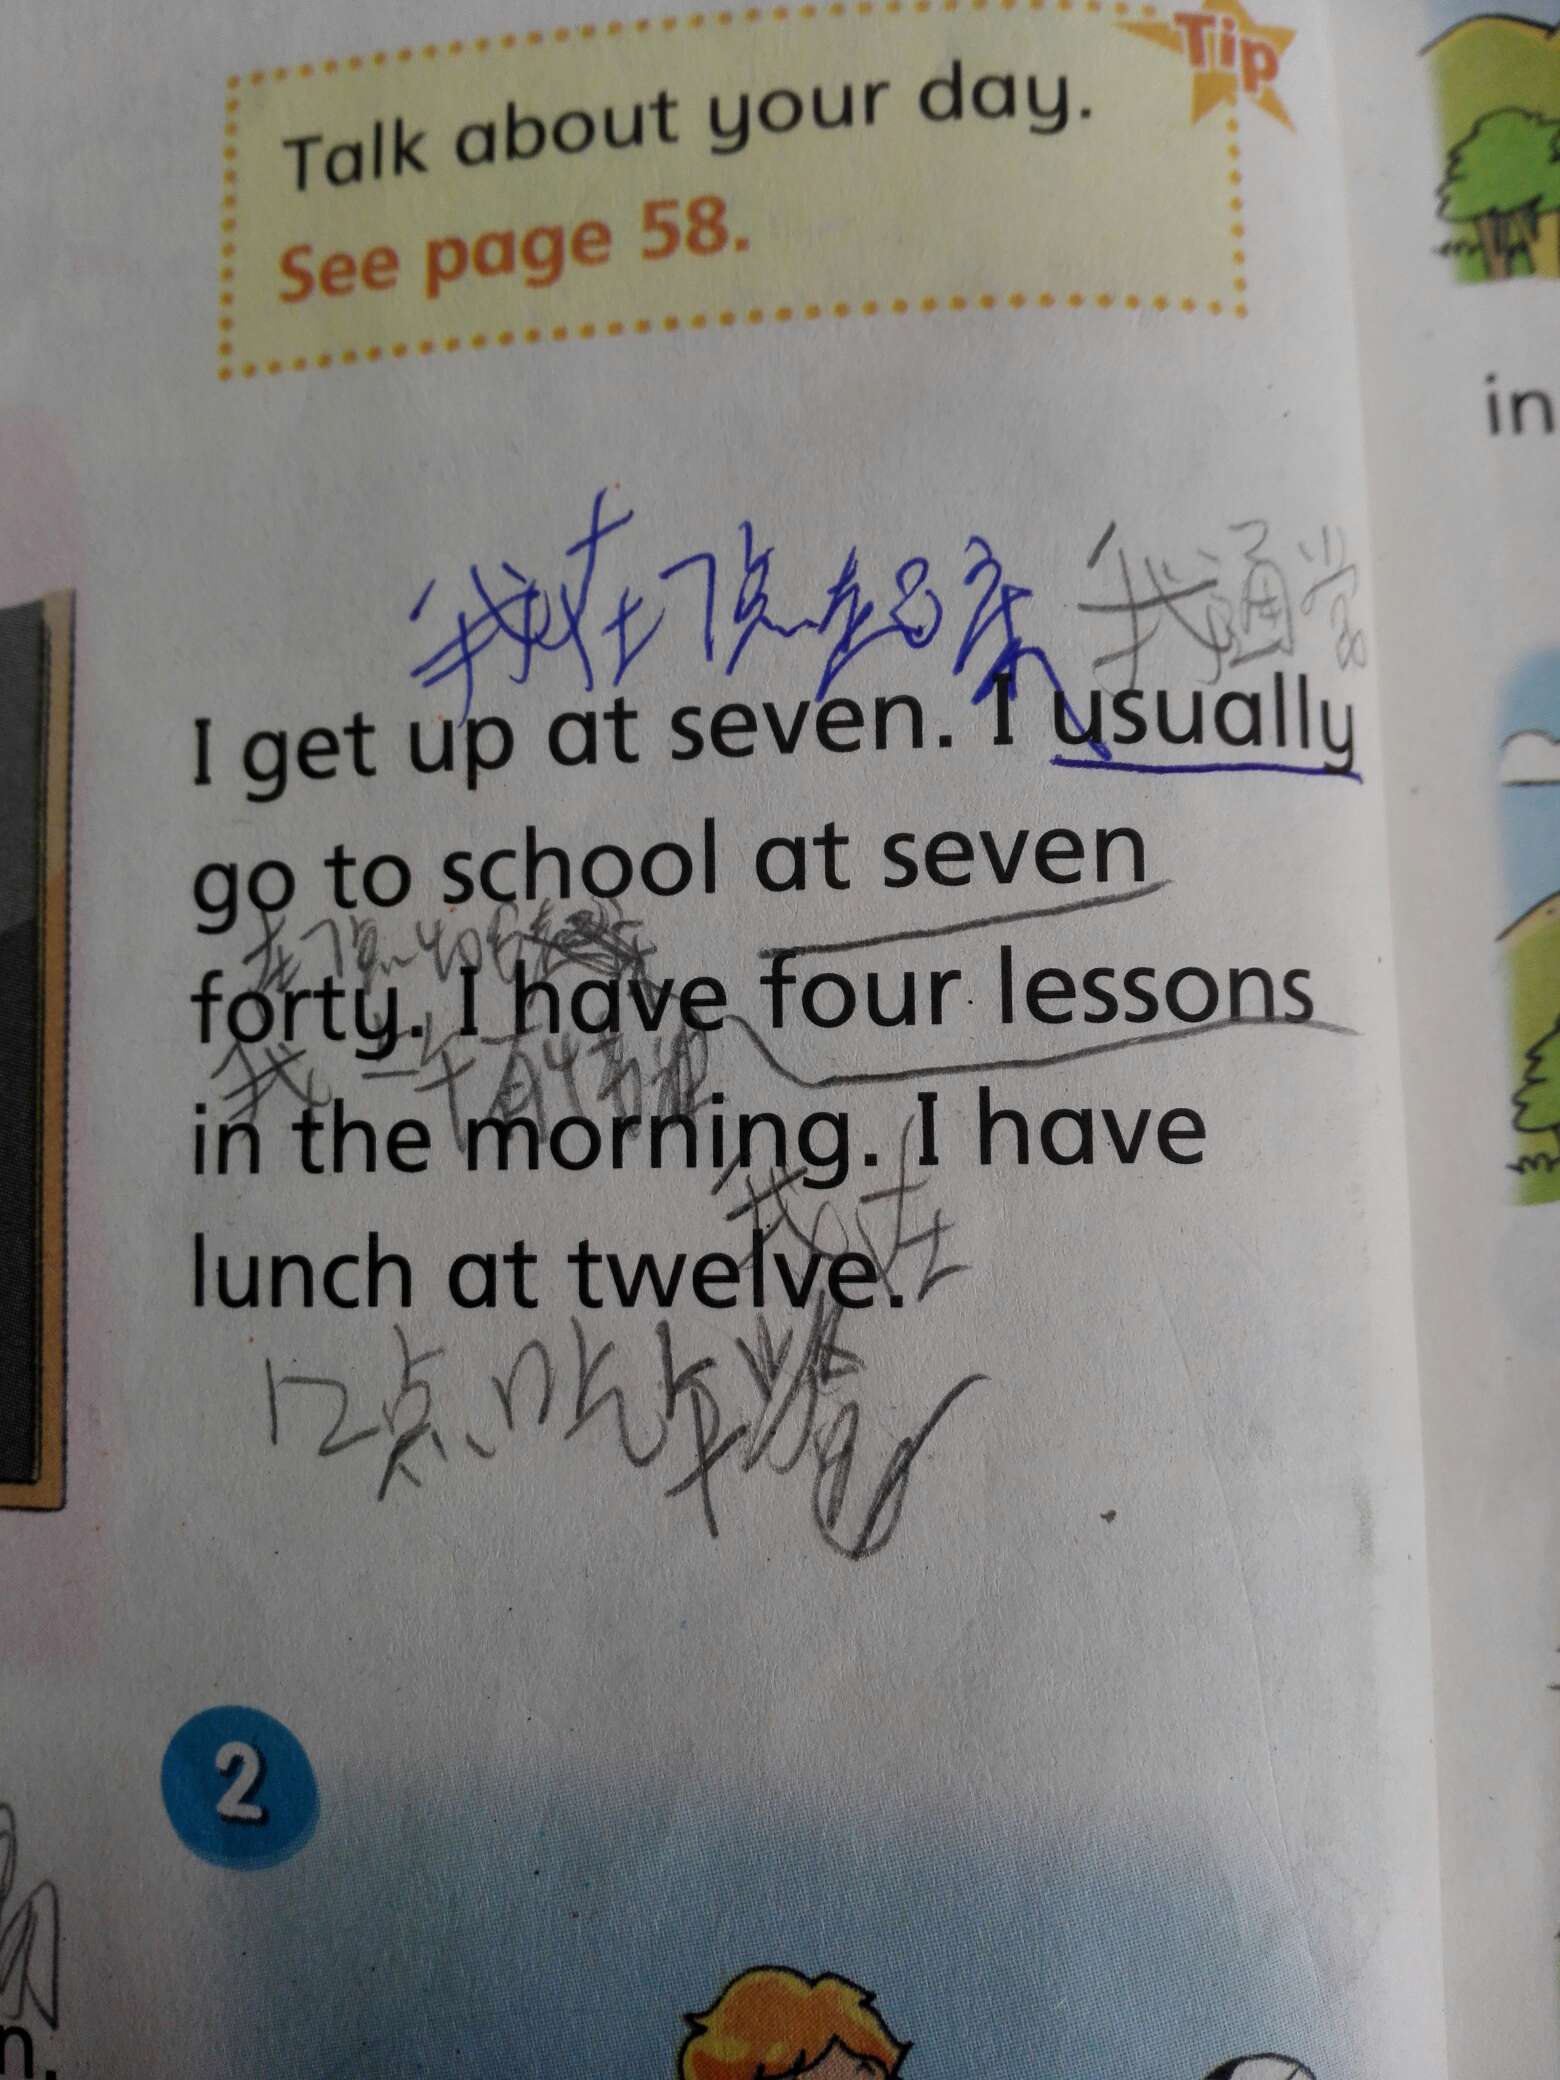 Tip
Talk about your day.
See page 58.
我在7点起床 我通常
I get up at seven. I usually
go to school at seven
在7点40
forty. I have four lessons
我一午有4节课
in the morning. I have
我在
lunch at twelve.
12点吃午餐
2
in
n.